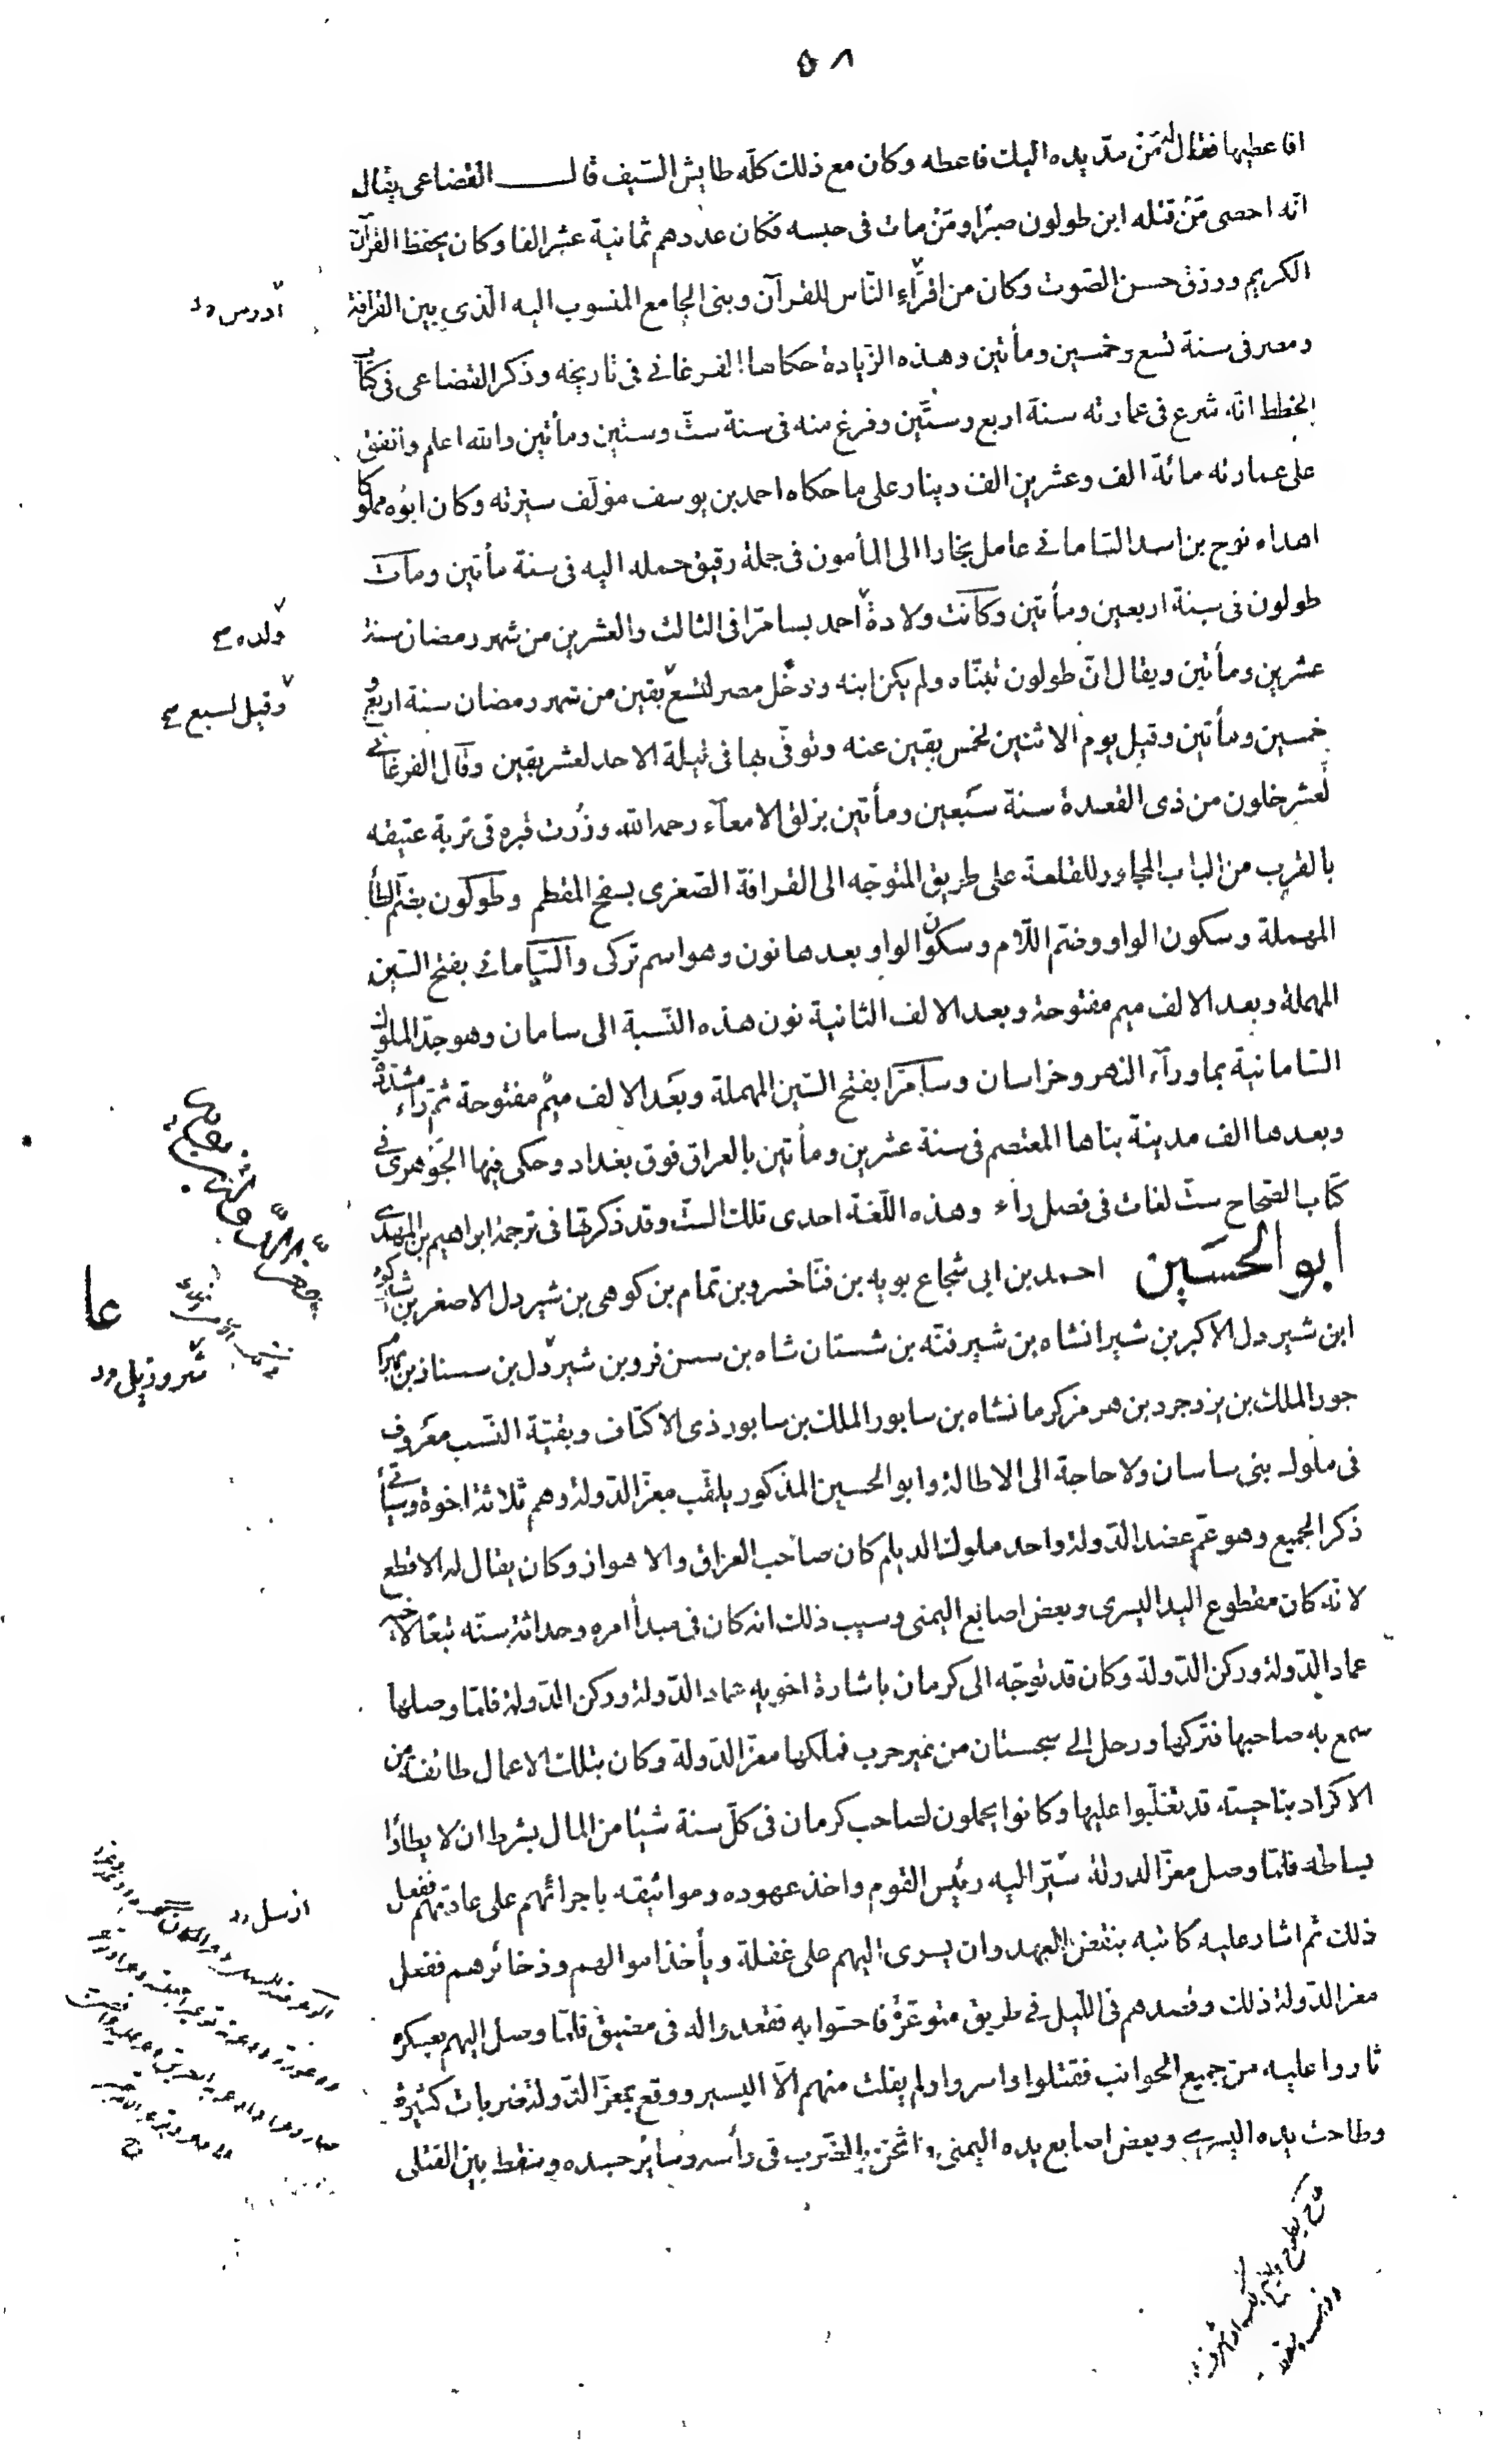 ٥٨
افاعطيها فقال له مَنْ مدّ يده اليك فاعطه وكان مع ذلك كلّه طايش السّيف قال القضاعى يقال
انّه احصى مَنْ قتله ابن طولون صبرًا ومَنْ مات فى حبسه فكان عددهم ثمانية عشر الفا وكان يحفظ القرآن
الكريم ورزق حسن الصّوت وكان من اقرّاءِ النّاس للقرآن وبنى الجامع المنسوب اليه الّذى بين القرافة
ومصر فى سنة تسع وخمسين ومأتين وهذه الزّيادة حكاها الفرغانى فى تاريخه وذكر القضاعى فى كتاب
الخطط انّه شرع فى عمارته سنة اربع وستّين وفرغ منه فى سنة ستّ وستّين ومأتين والله اعلم وانفق
على عمارته مائة الف وعشرين الف دينار على ما حكاه احمد بن يوسف مؤلّف سيرته وكان ابوُه مملوكا
اهداه نوح بن اسد السّامانى عامل بخارا الى المأمون فى جملة رقيق حمله اليه فى سنة مأتين ومات
طولون فى سنة اربعين ومأتين وكانت ولادة احمد بسامرّا فى الثالث والعشرين من شهر رمضان سنة
ولده صح
عشرين ومأتين ويقال انّ طولون تبنّاه ولم يكن ابنه ودخل مصر لتسع بقين من شهر رمضان سنة اربع و
وقيل لسبع صح
خمسين ومأتين وقيل يوم الاثنين لخمس بقين عنه وتوفّى بها فى ليلة الاحد لعشر بقين وقال الفرغانى
لعشر خلون من ذى القعدة سنة سَبعين ومأتين بزلق الامعآء رحمه الله وزُرت قبره فى تربة عتيقه
بالقرب من الباب المجاور للقلعة على طريق المتوجّه الى القرافة الصّغرى بسفح المقطم وطولون بضمّ الطا
المهملة وسكون الواو وضمّ اللّام وسكون الواو بعدها نون وهو اسم تركى والسّامانى بفتح السّين
المهملة وبعد الالف ميم مفتوحة وبعد الالف الثانية نون هذه النّسبة الى سامان وهو جدّ الملوك
السّامانية بماورآء النهر وخراسان وسامرّا بفتح السّين المهملة وبعَد الالف ميم مفتوحة ثمّ راء مشدّدة
وبعدها الف مدينة بناها المعتصم فى سنة عشرين ومأتين بالعراق فوق بغداد وحكى فيها الجَوهرى فى
كتاب الصّحاح ستّ لغات فى فصل راء وهذه اللّغة احدى تلك السّتّ وقد ذكرتها فى ترجمة ابراهيم بن المهدى
ابو الحسَين احمد بن ابى شجاع بويه بن فنّاخسرو بن تمام بن كوهى بن شير دل الاصغر بن
ابن شير دل الاكبر بن شيرانشاه بن شيرفنّه بن شستان شاه بن سسن فرو بن شيردل بن سسناذ بن بهرا
عا
جور الملك بن يزدجرد بن هرمز كرمانشاه بن سابور الملك بن سابور ذى الاكتاف وبقيّة النّسب معرُوف
فى ملوك بنى ساسان ولا حاجة الى الاطالة وابو الحسين المذكور يلقّب معزّ الدّولة وهم ثلاثة اخوة وسيأتى
ذكر الجميع وهو عمّ عضد الدّولة واحد ملوك الديلم كان صاحب العراق والاهواز وكان يقال له الاقطع
لانّه كان مقطوع اليد اليسرى وبعض اصابع اليمنى وسبب ذلك انه كان فى مبدأ امره وحداثة سنّه تبعًا لاخيه
عماد الدّولة وركن الدّولة وكان قد توجّه الى كرمان باشارة اخويه عماد الدّولة وركن الدّولة فلمّا وصلها
سمع به صاحبها فتركها ورحل الى سجستان من غير حرب فملكها معزّ الدّولة وكان بتلك الاعمال طائفة من
الاكراد بناحيته قد تغلّبوا عليها وكانوا يحملون لصاحب كرمان فى كلّ سنة شيئا من المال بشرط ان لا يطأوا
بساطه فلمّا وصل معزّ الدولة سيّر اليه رئيس القوم واخذ عهوده ومواثيقه باجرائهم على عادتهم ففعل
ارسل
ذلك ثم اشار عليه كاتبه بنقض العهد وان يسرى اليهم على غفلة ويأخذ اموالهم وذخائرهم ففعل
معز الدّولة ذلك وقصدهم فى اللّيل فى طريق متوعّرة فاحسّوا به فقعدوا له فى مضيق فلمّا وصل اليهم بعسكره
ثاروا عليه من جميع الجوانب فقتلوا واسروا ولم يفلت منهم الّا اليسير ووقع بمعزّ الدّولة ضربات كثيرة
وطاحت يده اليسرى وبعض اصابع يده اليمنى واثخن بالضّرب فى رأسه وسائر جسده وسقط بين القتلى